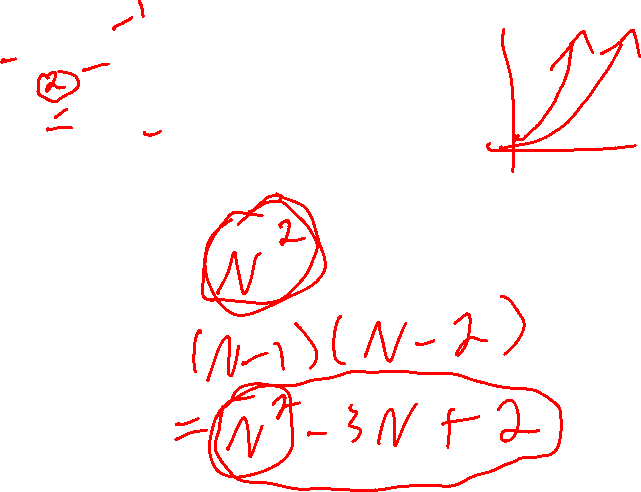 2
N²
(N-1)(N-2)
= N² - 3N + 2